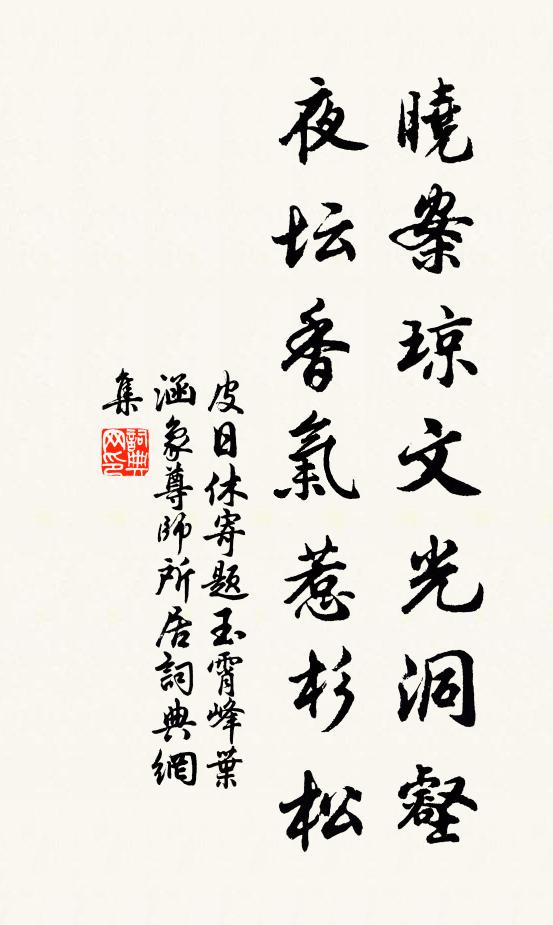 曉案琼文光洞壑
夜坛香氣惹杉松
皮日休寄题玉霄峰葉
涵象尊師所居詞典網
集
詞典网印